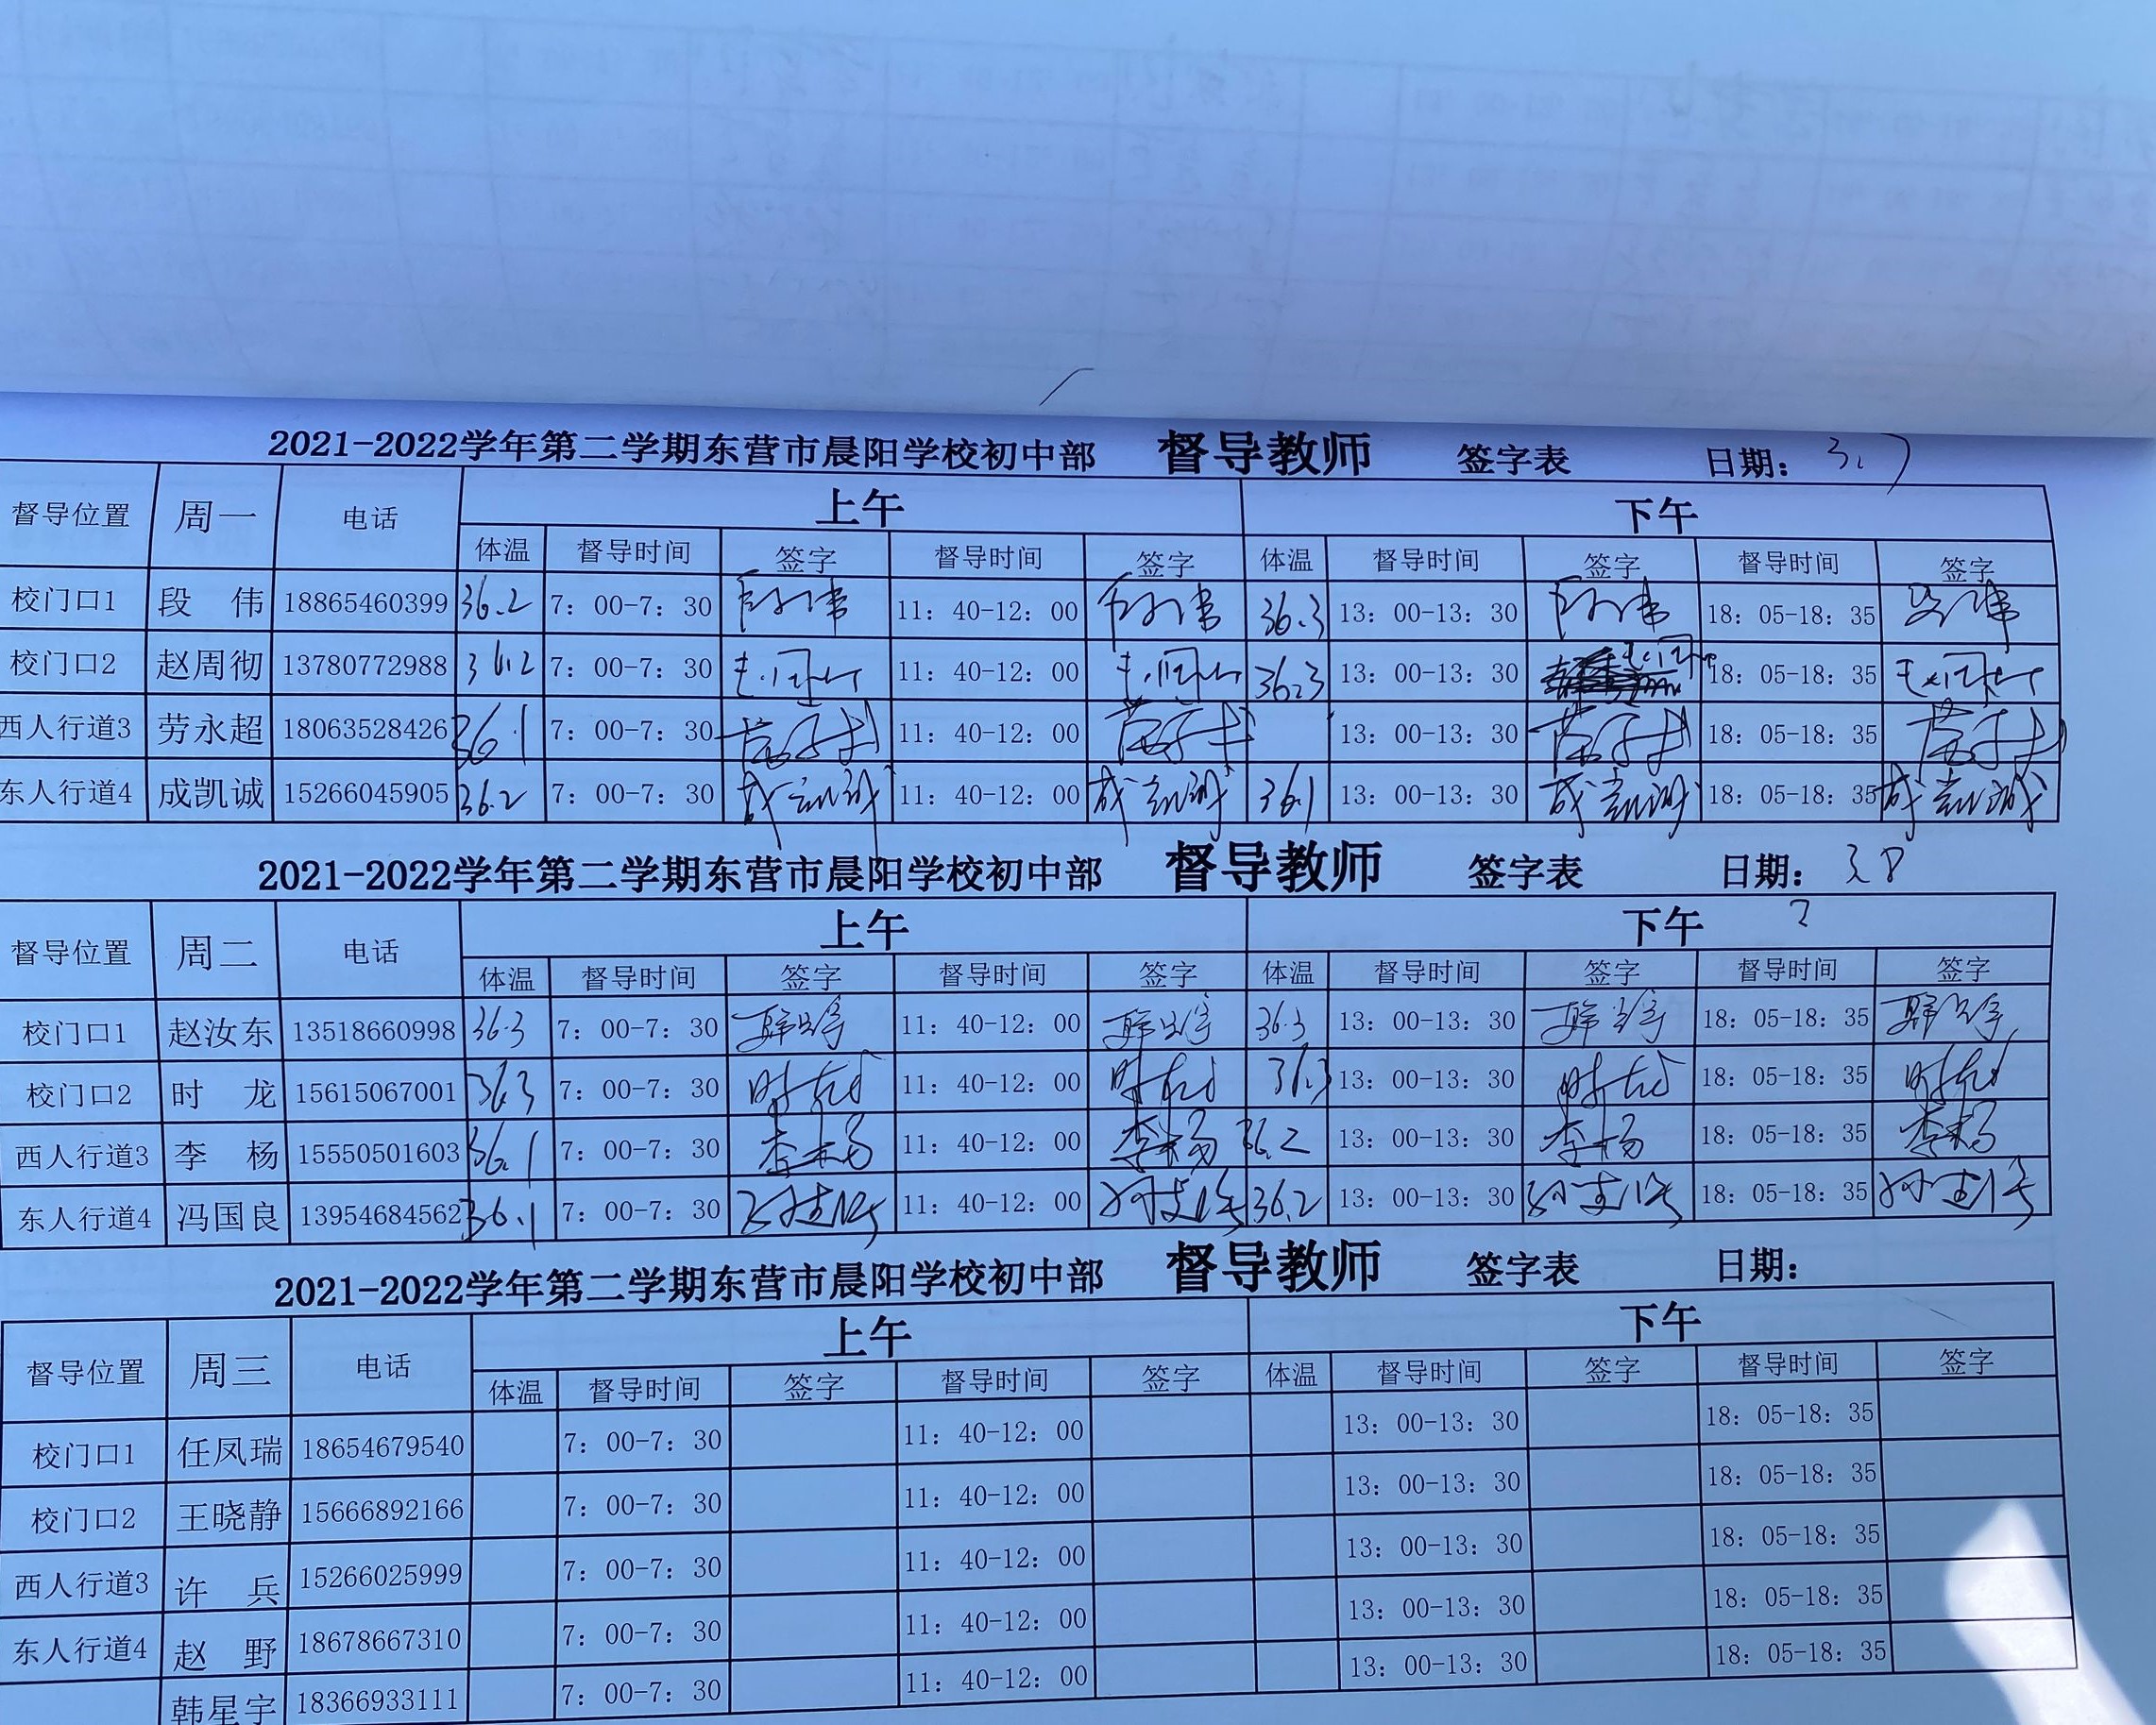 2021-2022学年第二学期东营市晨阳学校初中部 督导教师 签字表 日期： 3.7
督导位置 周一 电话 上午 下午
体温 督导时间 签字 督导时间 签字 体温 督导时间 签字 督导时间 签字
校门口1 段 伟 18865460399 36.2 7：00-7：30 段伟 11：40-12：00 段伟 36.3 13：00-13：30 段伟 18：05-18：35 段伟
校门口2 赵周彻 13780772988 36.2 7：00-7：30 11：40-12：00 36.3 13：00-13：30 18：05-18：35
西人行道3 劳永超 18063528426 36.1 7：00-7：30 11：40-12：00 13：00-13：30 18：05-18：35
东人行道4 成凯诚 15266045905 36.2 7：00-7：30 成凯诚 11：40-12：00 成凯诚 36.1 13：00-13：30 成凯诚 18：05-18：35 成凯诚
2021-2022学年第二学期东营市晨阳学校初中部 督导教师 签字表 日期： 3.8
督导位置 周二 电话 上午 下午
体温 督导时间 签字 督导时间 签字 体温 督导时间 签字 督导时间 签字
校门口1 赵汝东 13518660998 36.3 7：00-7：30 韩星宇 11：40-12：00 韩星宇 36.3 13：00-13：30 韩星宇 18：05-18：35 韩星宇
校门口2 时 龙 15615067001 36.3 7：00-7：30 时龙 11：40-12：00 时龙 36.3 13：00-13：30 时龙 18：05-18：35 时龙
西人行道3 李 杨 15550501603 36.1 7：00-7：30 李杨 11：40-12：00 李杨 36.2 13：00-13：30 李杨 18：05-18：35 李杨
东人行道4 冯国良 13954684562 36.1 7：00-7：30 11：40-12：00 36.2 13：00-13：30 18：05-18：35
2021-2022学年第二学期东营市晨阳学校初中部 督导教师 签字表 日期：
督导位置 周三 电话 上午 下午
体温 督导时间 签字 督导时间 签字 体温 督导时间 签字 督导时间 签字
校门口1 任凤瑞 18654679540 7：00-7：30 11：40-12：00 13：00-13：30 18：05-18：35
校门口2 王晓静 15666892166 7：00-7：30 11：40-12：00 13：00-13：30 18：05-18：35
西人行道3 许 兵 15266025999 7：00-7：30 11：40-12：00 13：00-13：30 18：05-18：35
东人行道4 赵 野 18678667310 7：00-7：30 11：40-12：00 13：00-13：30 18：05-18：35
韩星宇 18366933111 7：00-7：30 11：40-12：00 13：00-13：30 18：05-18：35